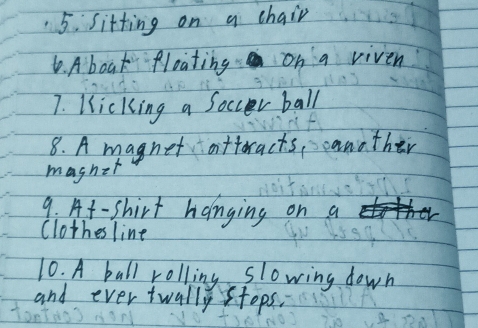 5. Sitting on a chair
6. A boat floating on a riven
7. Kicking a Soccer ball
8. A magnet attaracts, another
magnet
9. A t-Shirt hanging on a
Clothesline
10. A ball rolling Slowing down
and ever twally Stops.